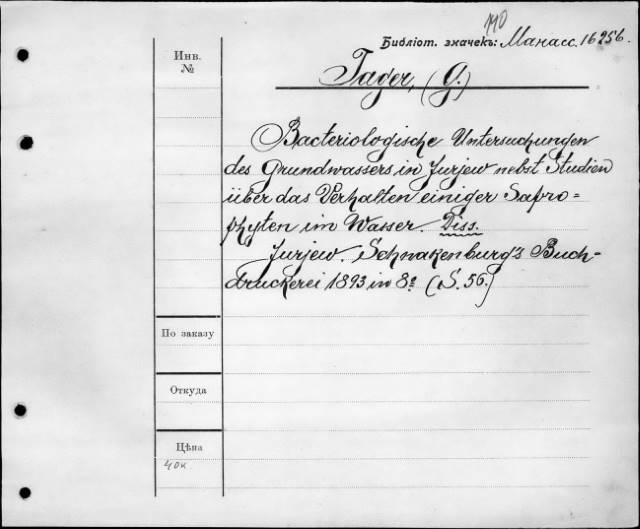 140
Библіот. значекъ: Манасс. 16256.
Инв.
№
Tager, (G.)
Bacteriologische Untersuchungen
des Grundwassers in Jurjew nebst Studien
über das Verhalten einiger Sapro=
phyten im Wasser. Diss.
Jurjew. Schnakenburg's Buch-
druckerei 1893 in 8º (S. 56.)
По заказу
Откуда
Цѣна
40 к.